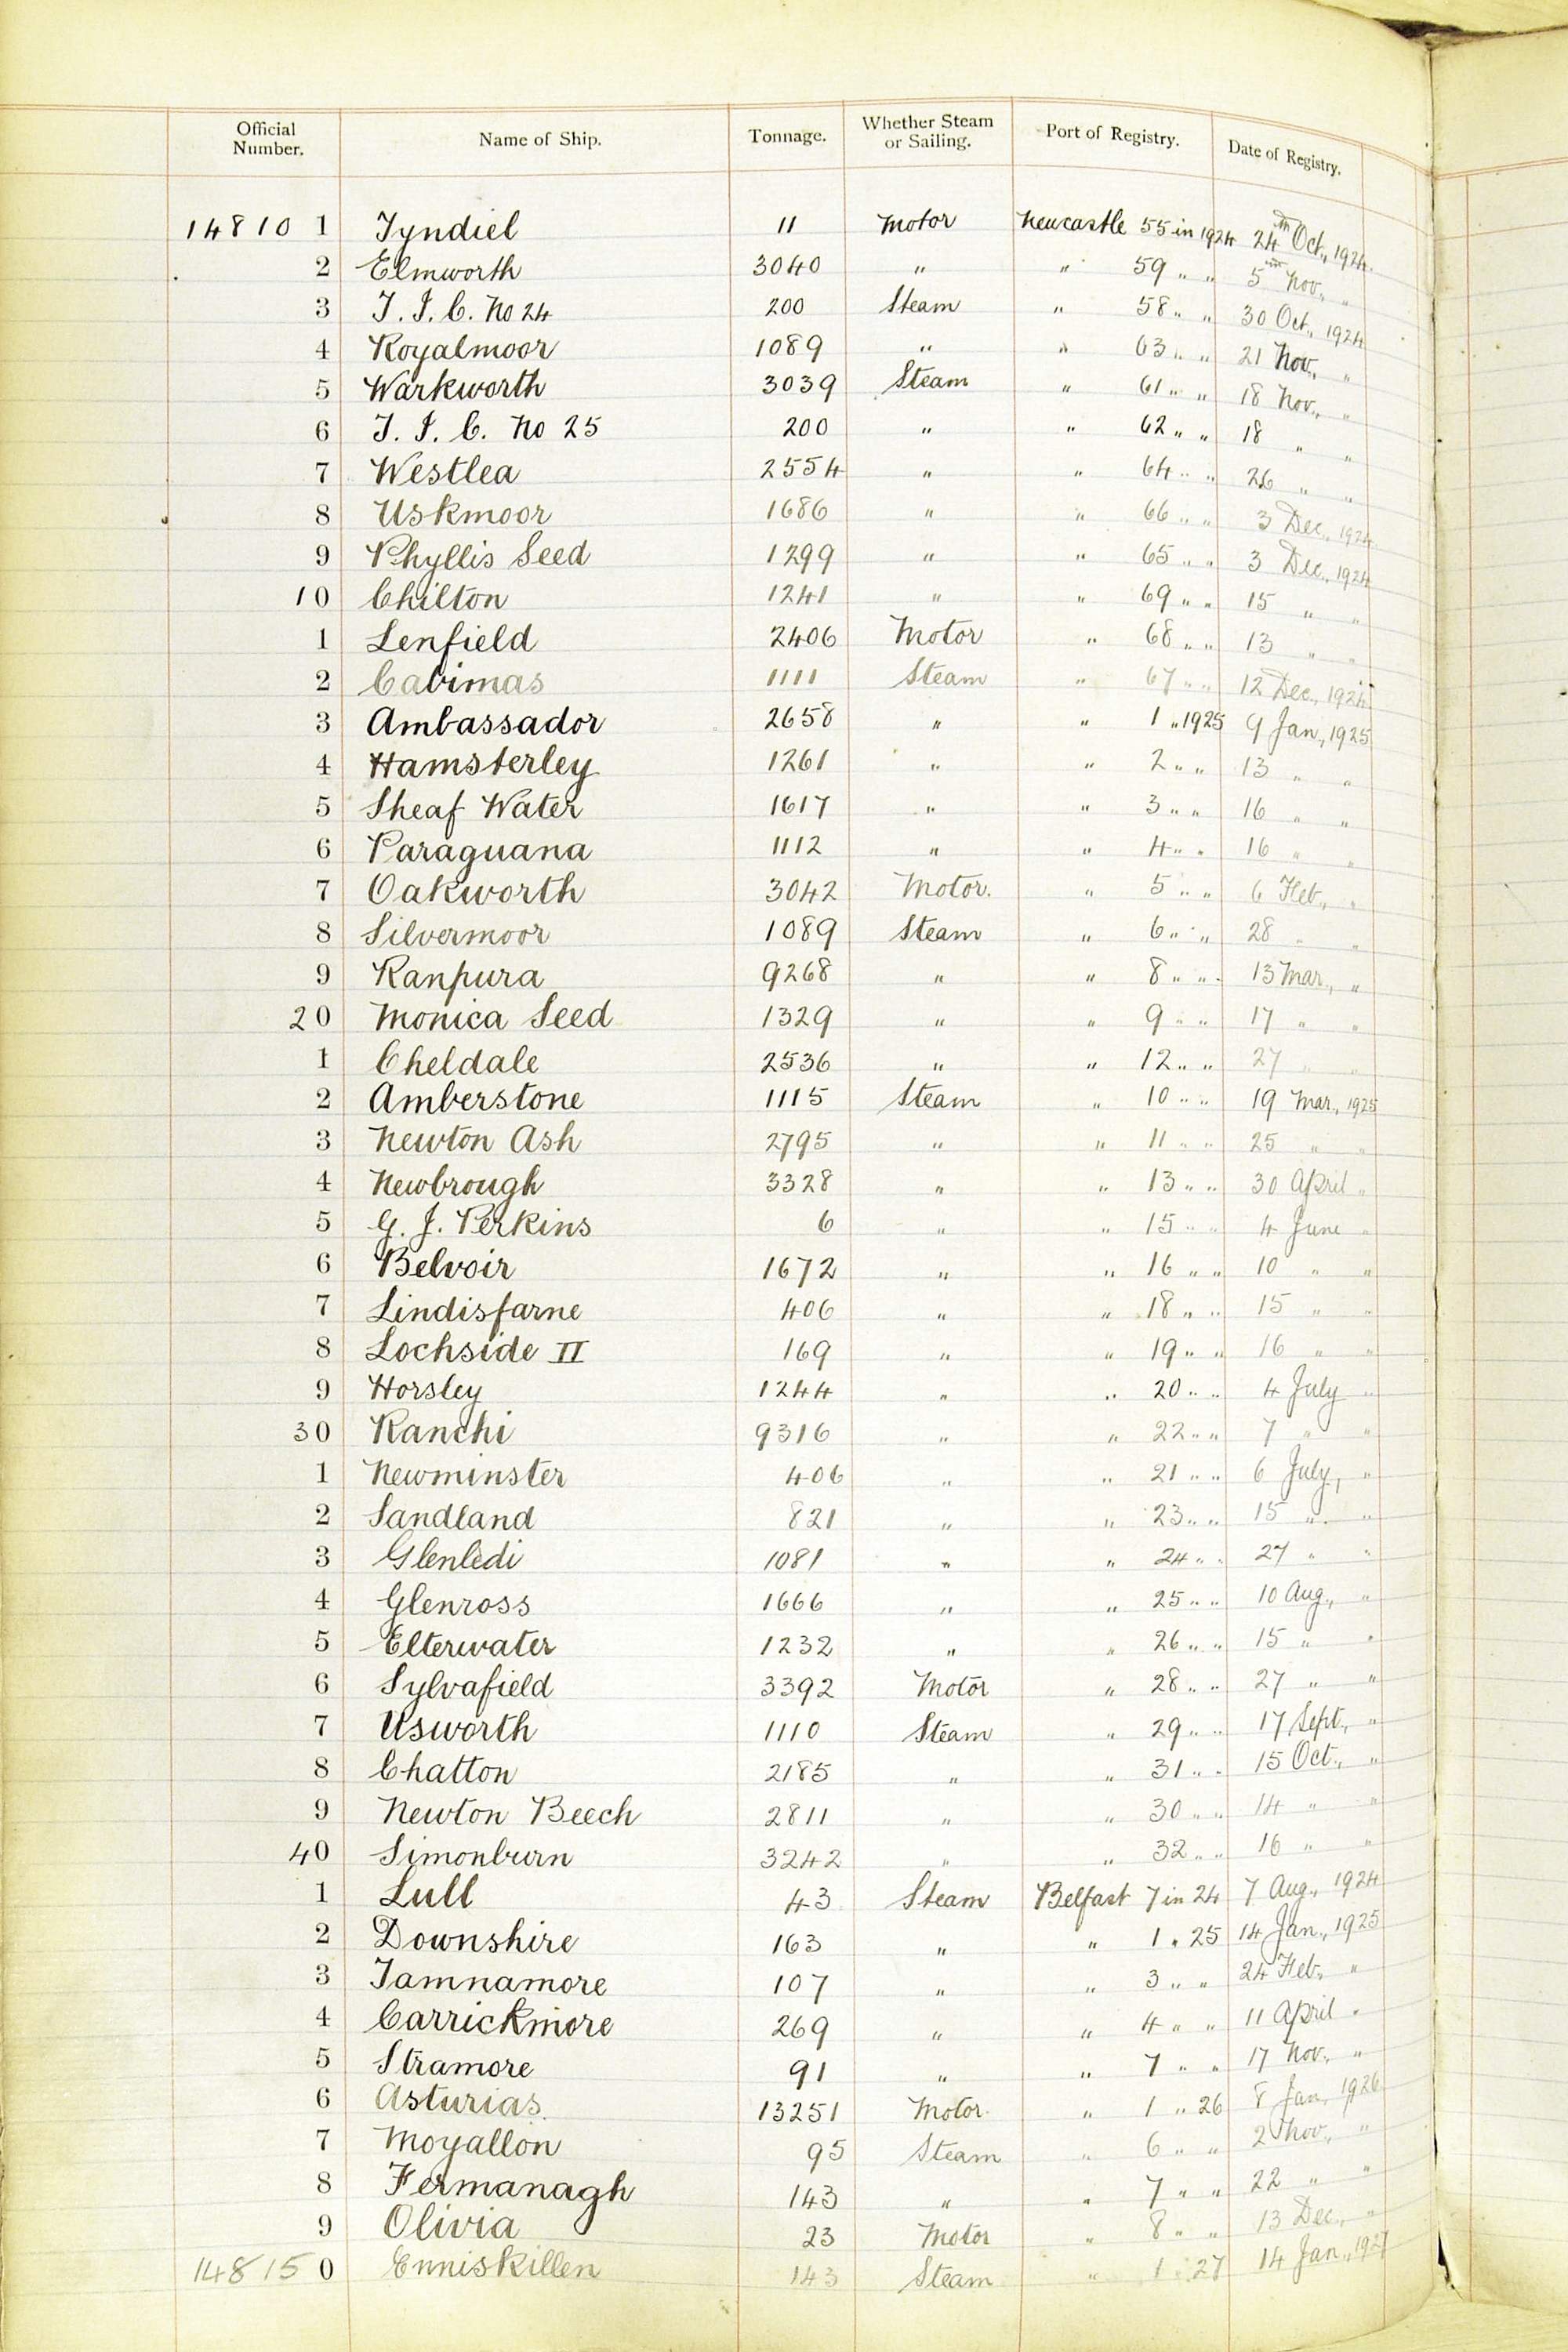 Official Number. Name of Ship. Tonnage. Whether Steam or Sailing. Port of Registry. Date of Registry.
148101 Tyndiel 11 Motor Newcastle 55 in 1924 24th Oct., 1924
2 Elmworth 3040 " " 59 " " 5th Nov., "
3 T. I. C. No 24 200 Steam " 58 " " 30 Oct., 1924
4 Royalmoor 1089 " " 63 " " 21 Nov., "
5 Warkworth 3039 Steam " 61 " " 18 Nov., "
6 T. I. C. No 25 200 " " 62 " " 18 " "
7 Westlea 2554 " " 64 " " 26 " "
8 Uskmoor 1686 " " 66 " " 3 Dec., 1924
9 Phyllis Seed 1299 " " 65 " " 3 Dec., 1924
10 Chilton 1241 " " 69 " " 15 " "
1 Lenfield 2406 Motor " 68 " " 13 " "
2 Cabimas 1111 Steam " 67 " " 12 Dec., 1924
3 Ambassador 2658 " " 1 " 1925 9 Jan., 1925
4 Hamsterley 1261 " " 2 " " 13 " "
5 Sheaf Water 1617 " " 3 " " 16 " "
6 Paraguana 1112 " " 4 " " 16 " "
7 Oakworth 3042 Motor. " 5 " " 6 Feb., "
8 Silvermoor 1089 Steam " 6 " " 28 " "
9 Ranpura 9268 " " 8 " " 13 Mar., "
20 Monica Seed 1329 " " 9 " " 17 " "
1 Cheldale 2536 " " 12 " " 27 " "
2 Amberstone 1115 Steam " 10 " " 19 Mar., 1925
3 Newton Ash 2795 " " 11 " " 25 " "
4 Newbrough 3328 " " 13 " " 30 April "
5 G. J. Perkins 6 " " 15 " " 4 June "
6 Belvoir 1672 " " 16 " " 10 " "
7 Lindisfarne 406 " " 18 " " 15 " "
8 Lochside II 169 " " 19 " " 16 " "
9 Horsley 1244 " " 20 " " 4 July "
30 Ranchi 9316 " " 22 " " 7 " "
1 Newminster 406 " " 21 " " 6 July, "
2 Sandland 821 " " 23 " " 15 " "
3 Glenledi 1081 " " 24 " " 27 " "
4 Glenross 1666 " " 25 " " 10 Aug., "
5 Elterwater 1232 " " 26 " " 15 " "
6 Sylvafield 3392 Motor " 28 " " 27 " "
7 Usworth 1110 Steam " 29 " " 17 Sept., "
8 Chatton 2185 " " 31 " " 15 Oct., "
9 Newton Beech 2811 " " 30 " " 14 " "
40 Simonburn 3242 " " 32 " " 16 " "
1 Lull 43 Steam Belfast 7 in 24 7 Aug., 1924
2 Downshire 163 " " 1 " 25 14 Jan., 1925
3 Tamnamore 107 " " 3 " " 24 Feb., "
4 Carrickmore 269 " " 4 " " 11 April "
5 Stramore 91 " " 7 " " 17 Nov., "
6 Asturias 13251 Motor " 1 " 26 8 Jan., 1926
7 Moyallon 95 Steam " 6 " " 2 Nov., "
8 Fermanagh 143 " " 7 " " 22 " "
9 Olivia 23 Motor " 8 " " 13 Dec., "
148150 Enniskillen 143 Steam " 1 " 27 14 Jan., 1927